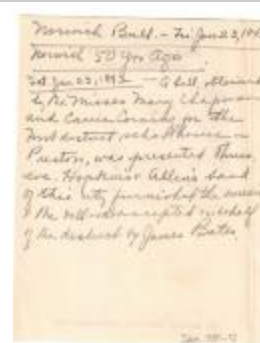 Norwich Bull. - Fri. Jan 23, 194
Norwich 50 Yrs Ago
Sat Jan 23, 1893 - A bell, obtained
by the Misses Mary Chapman
and Carrie Corning for the
district schoolhouse in
Preston, was presented Thurs.
eve. Hopkins Allen's band
of this city furnished the music
& the bell was accepted on behalf
of the district by James Bates.